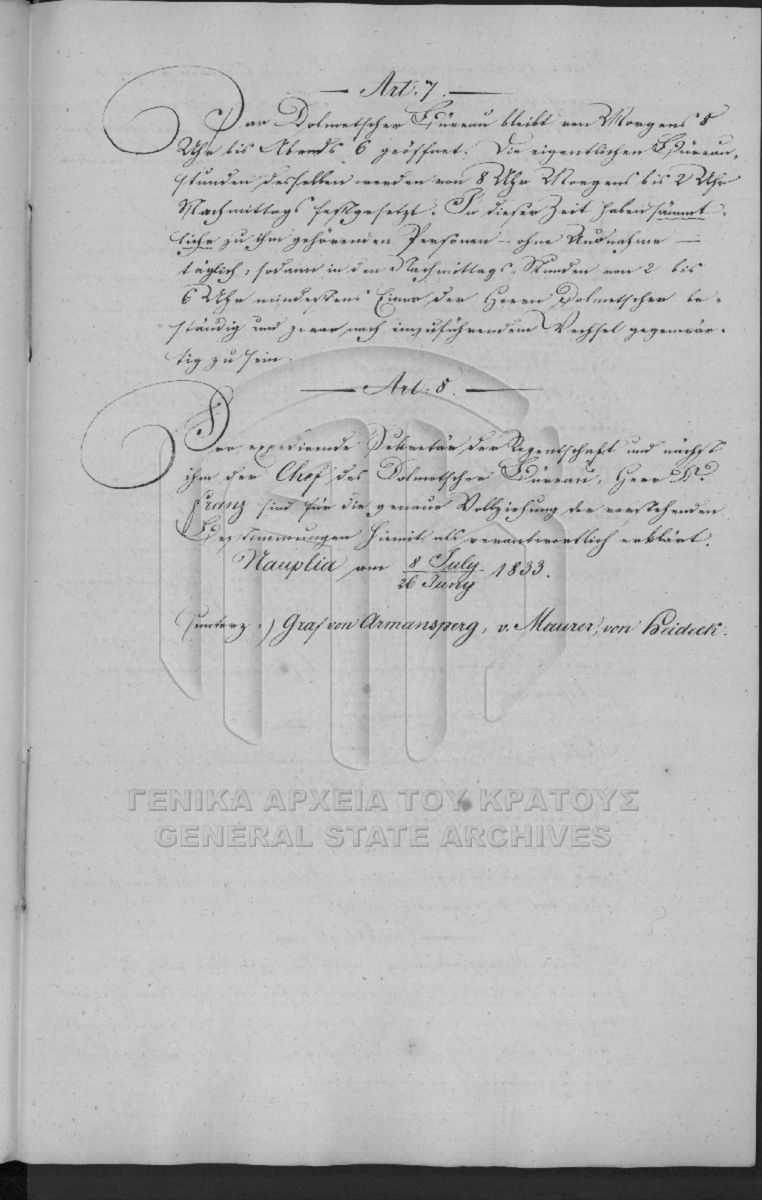 Art. 7.
Das Dolmetscher Büreau bleibt von Morgens 8
Uhr bis Abends 6 geöffnet. Die eigentlichen Büreau-
stunden desselben werden von 8 Uhr Morgens bis 2 Uhr
Nachmittags festgesetzt. In dieser Zeit haben sämmt-
liche zu ihm gehörenden Personen – ohne Ausnahme –
täglich, sodann in den Nachmittags-Stunden von 2 bis
6 Uhr mindestens Einer der Herrn Dolmetscher be-
ständig und zwar nach einzuführendem Wechsel gegenwär-
tig zu sein.
Art. 8.
Der expedirende Sekretär der Regentschaft und nächst
ihm der Chef des Dolmetscher Büreau, Herr Dr.
Franz sind für die genaue Vollziehung der vorstehenden
Bestimmungen hiemit als verantwortlich erklärt.
Nauplia am 8 July / 26 Juny 1833.
(unterz:) Graf von Armansperg, v. Maurer, von Heideck.
ΓΕΝΙΚΑ ΑΡΧΕΙΑ ΤΟΥ ΚΡΑΤΟΥΣ
GENERAL STATE ARCHIVES